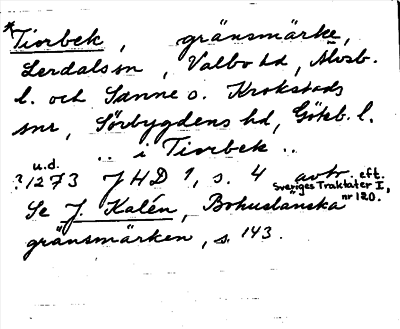 *Tiorbek, gränsmärke,
Lerdals sn, Valbo hd, Älvsb.
l. och Sanne o. Krokstads
snr, Sörbygdens hd, Götb. l.
.. i Tiorbek ..
u.d.
? 1273 JHD 1, s. 4 avtr. eft.
Sveriges Traktater I,
nr 120.
Se J. Kalén, Bohuslänska
gränsmärken, s. 143.